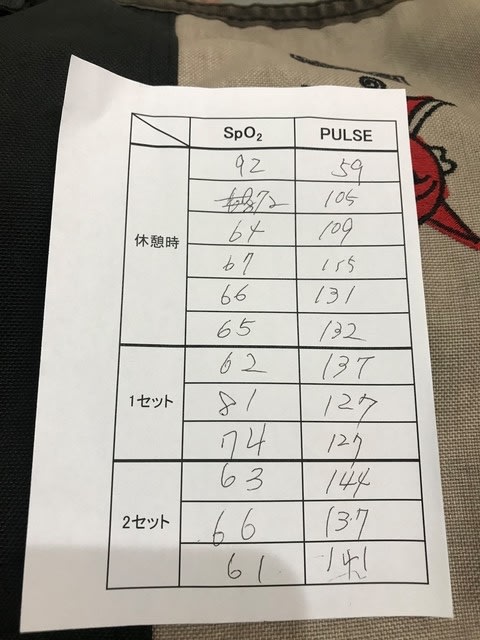 SpO₂ PULSE
休憩時
92 59
72 105
64 109
67 115
66 131
65 132
1セット
62 137
81 127
74 127
2セット
63 144
66 137
61 141